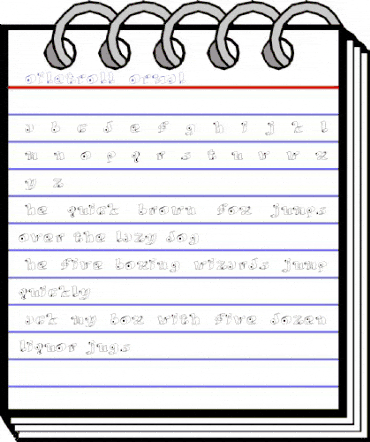 a b c d e f g h i j k l
m n o p q r s t u v w x
y z
he quick brown fox jumps
over the lazy dog
he five boxing wizards jump
quickly
ack my box with five dozen
liquor jugs